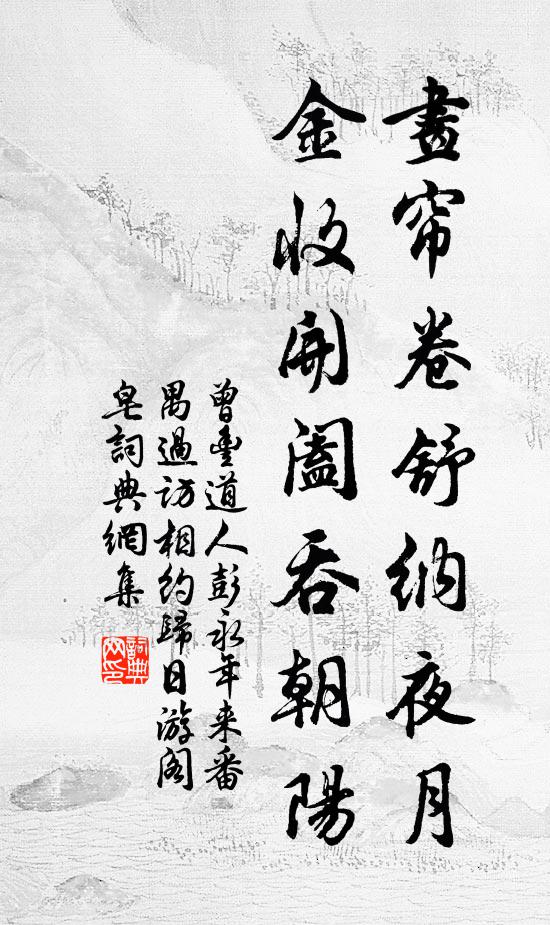 畫帘卷舒納夜月
金收開闔吞朝陽
曾豐道人彭永年来番
禺過訪相約歸日游阁
皂詞典網集
詞典
网印